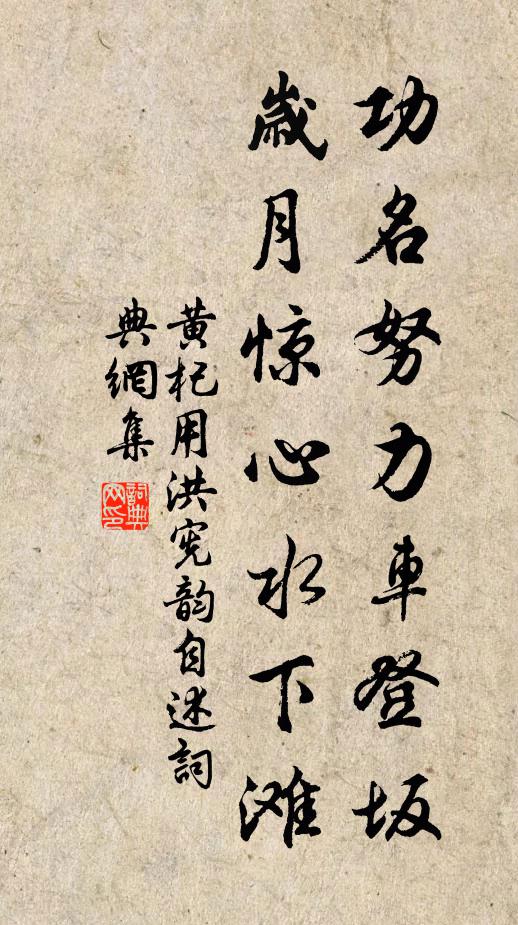 功名努力車登坂
歲月惊心水下滩
黄杞用洪宪韵自述詞
典網集
詞典
网印